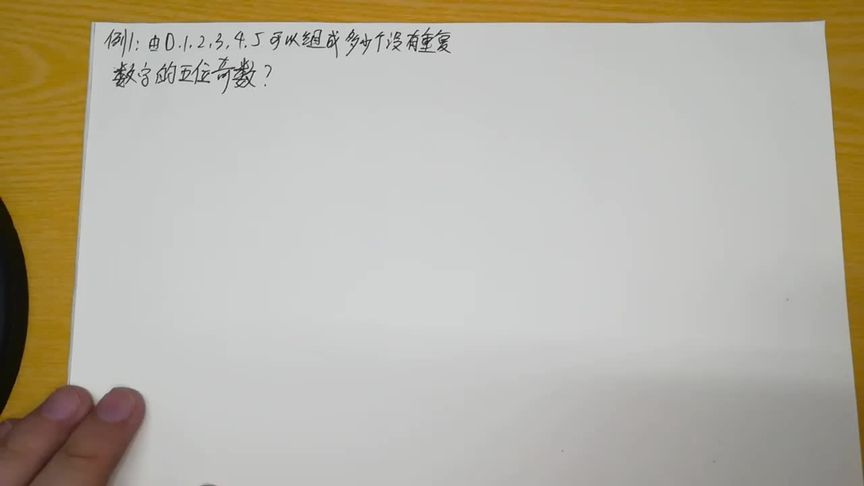 例1：由0.1.2.3.4.5可以组成多少个没有重复
数字的五位奇数？